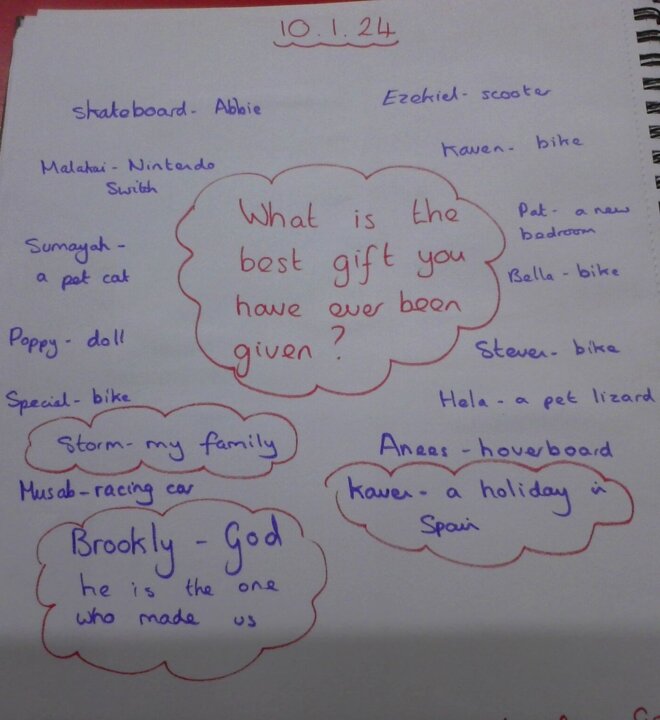 10.1.24
Skateboard - Abbie
Ezekiel - scooter
Malakai - Nintendo
Switch
Kaven - bike
What is the
best gift you
have ever been
given?
Pat - a new
bedroom
Sumayah -
a pet cat
Bella - bike
Poppy - doll
Steven - bike
Special - bike
Hela - a pet lizard
Storm - my family
Anees - hoverboard
Musab - racing car
Kaven - a holiday in
Spain
Brookly - God
he is the one
who made us